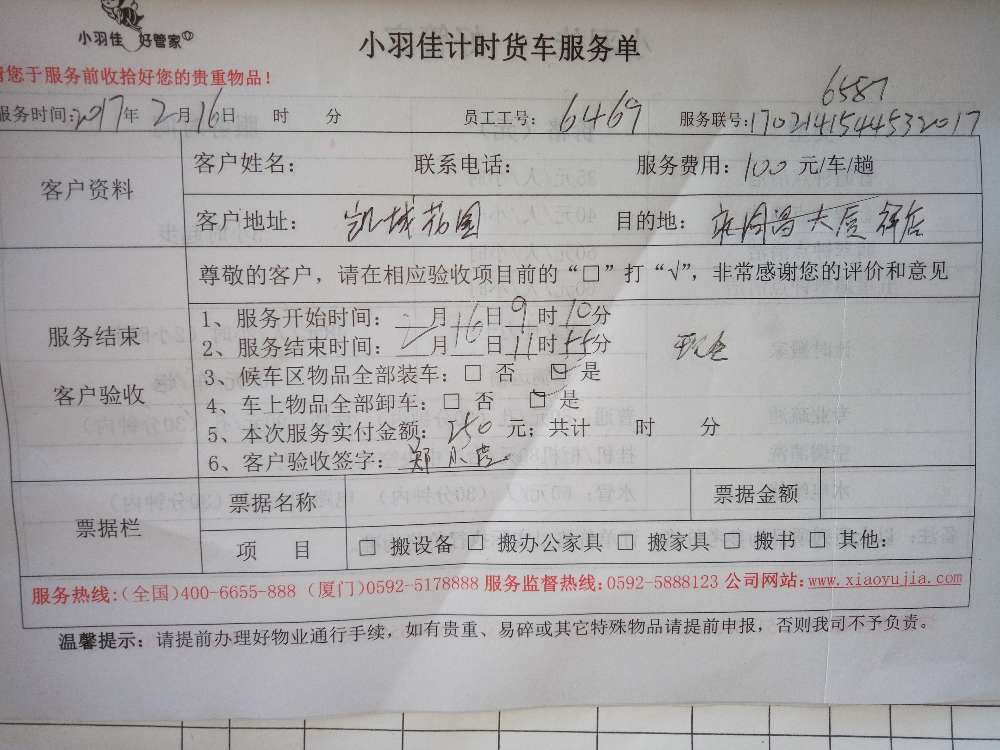 小羽佳 好管家
小羽佳计时货车服务单
请您于服务前收拾好您的贵重物品！
6587
服务时间:2017年 2月16日 时 分 员工工号: 6469 服务联号:1702141544532017
客户资料
客户姓名： 联系电话： 服务费用：100 元/车/趟
客户地址： 凯城花园 目的地： 大厦
尊敬的客户，请在相应验收项目前的“□”打“√”，非常感谢您的评价和意见
服务结束
客户验收
1、服务开始时间：2月16日9时10分
2、服务结束时间： 月 日11时55分
现金
3、候车区物品全部装车：□ 否 ☑ 是
4、车上物品全部卸车：□ 否 ☑ 是
5、本次服务实付金额：250 元；共计 时 分
6、客户验收签字：郑
票据栏
票据名称 票据金额
项 目 □ 搬设备 □ 搬办公家具 □ 搬家具 □ 搬书 □ 其他：
服务热线:(全国)400-6655-888 (厦门)0592-5178888 服务监督热线:0592-5888123 公司网站:www.xiaoyujia.com
温馨提示：请提前办理好物业通行手续，如有贵重、易碎或其它特殊物品请提前申报，否则我司不予负责。